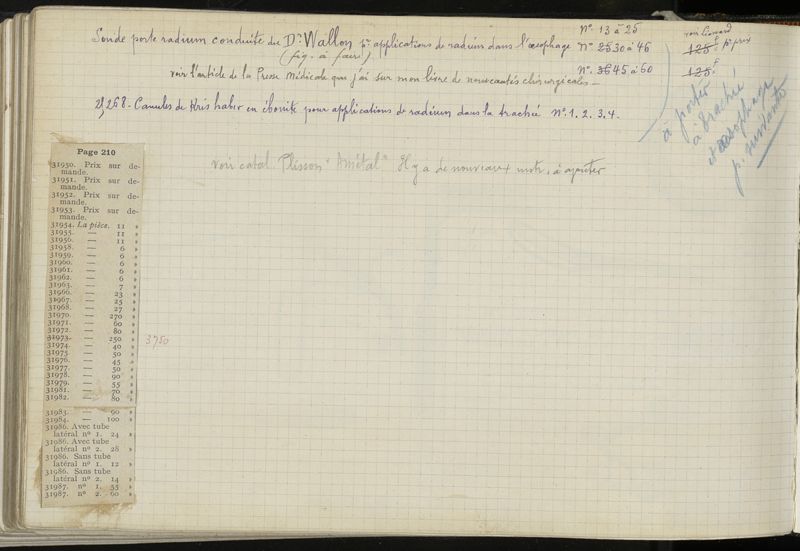 Sonde porte radium conduite du Dr Wallon pr applications de radium dans l'œsophage
(fig. à faire)
voir l'article de la Presse Médicale que j'ai sur mon livre de nouveautés chirurgicales
No 13 à 25
No 25 30 à 46
No 36 45 à 60
voir Léonard
125 f pr prix
125 f
à porter
à trachée
et œsophage
p. suivante
25268 - Canules de Krishaber en ébonite pour applications de radium dans la trachée No. 1. 2. 3. 4.
voir catal. Plisson "Amétal" Il y a de nouveaux instr. à ajouter
Page 210
31950. Prix sur de-
mande.
31951. Prix sur de-
mande.
31952. Prix sur de-
mande.
31953. Prix sur de-
mande.
31954. La pièce. 11 »
31955. — 11 »
31956. — 11 »
31958. — 6 »
31959. — 6 »
31960. — 6 »
31961. — 6 »
31962. — 6 »
31963. — 7 »
31966. — 23 »
31967. — 25 »
31968. — 27 »
31970. — 270 »
31971. — 60 »
31972. — 80 »
31973. — 250 » 3750
31974. — 40 »
31975. — 50 »
31976. — 45 »
31977. — 50 »
31978. — 90 »
31979. — 55 »
31981. — 70 »
31982. — 80 »
31983. — 90 »
31984. — 100 »
31986. Avec tube
latéral no 1. 24 »
31986. Avec tube
latéral no 2. 28 »
31986. Sans tube
latéral no 1. 12 »
31986. Sans tube
latéral no 2. 14 »
31987. no 1. 55 »
31987. no 2. 60 »